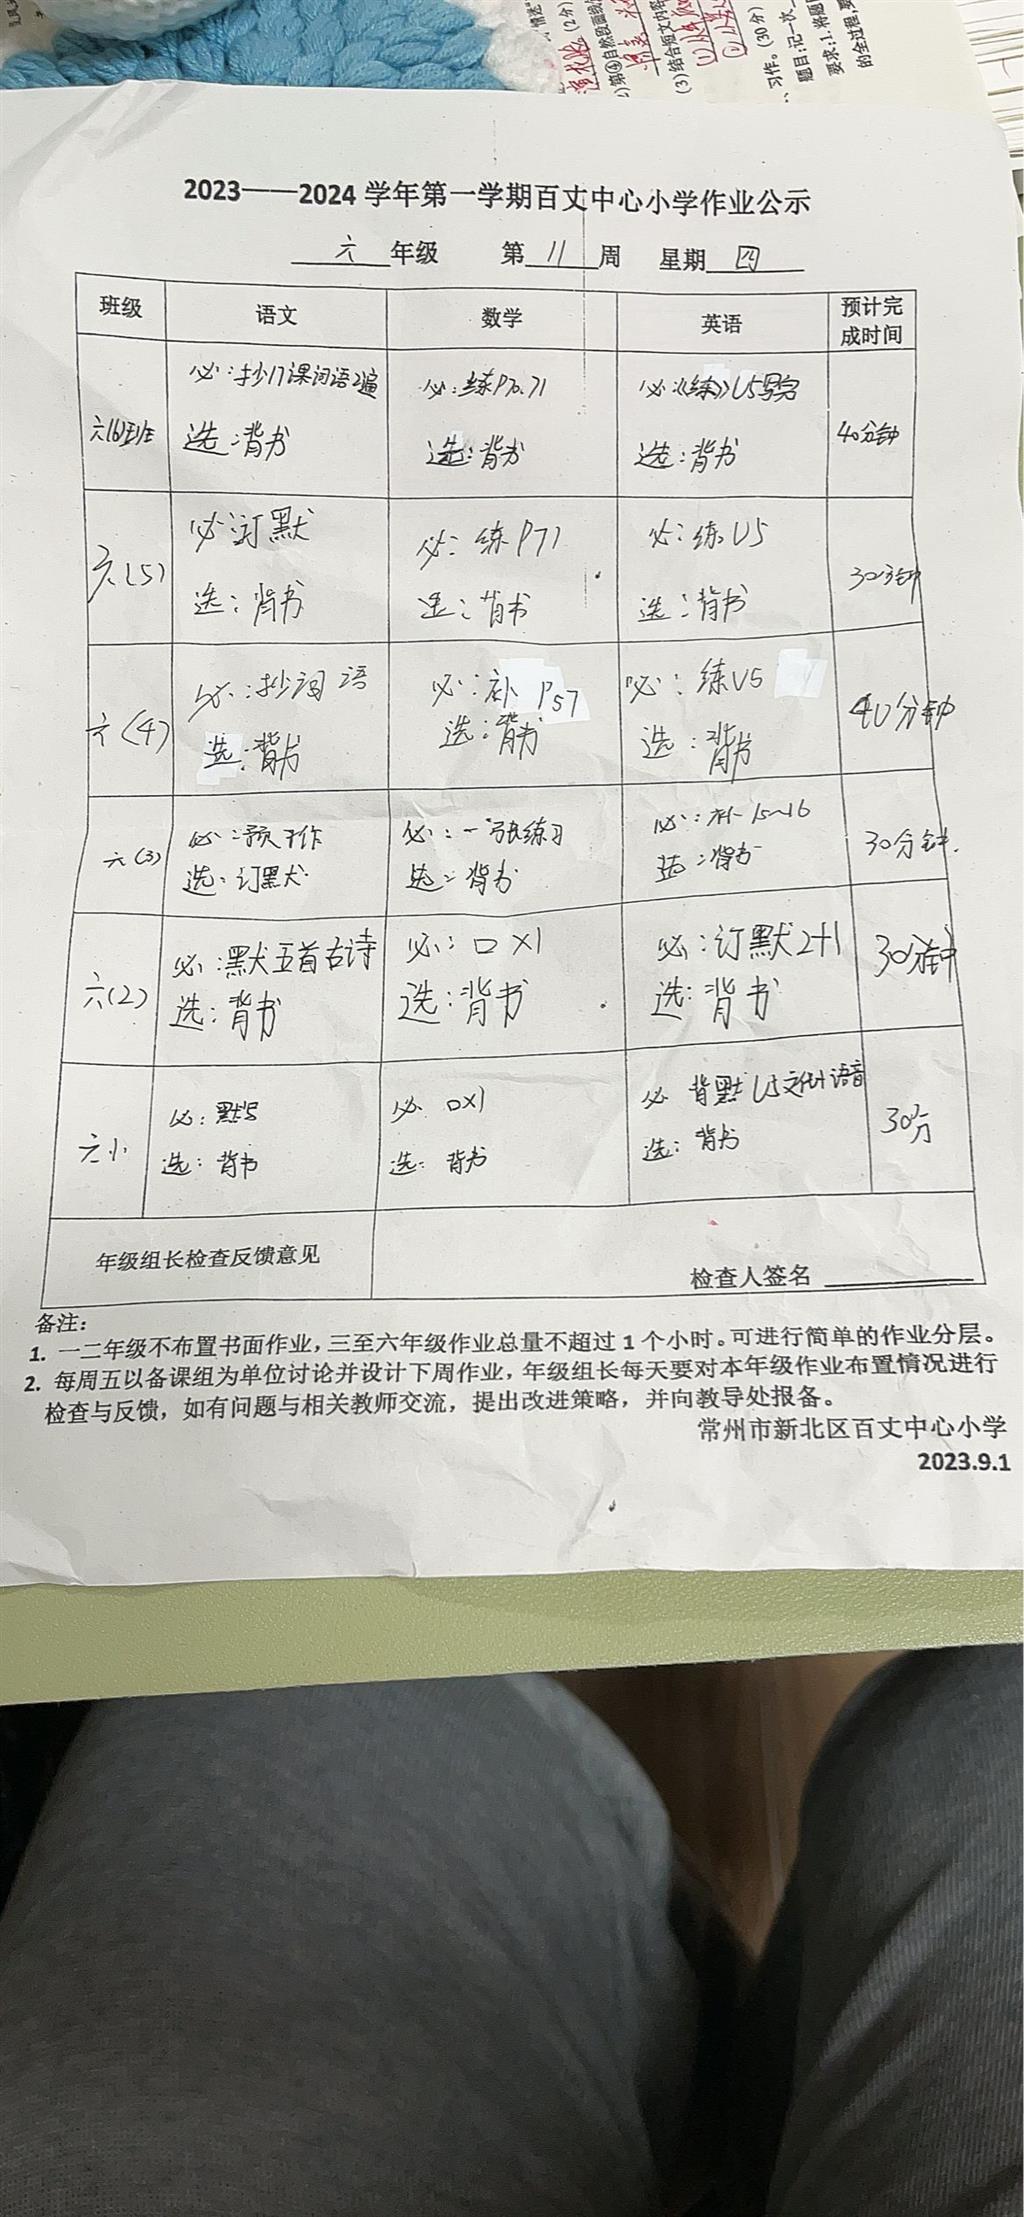 2023——2024 学年第一学期百丈中心小学作业公示
六 年级 第 11 周 星期 四
班级 语文 数学 英语 预计完成时间
六(6)班 必:抄17课词语2遍 必:练P70.71 必:《练》U5写完 40分钟
选:背书 选:背书 选:背书
六(5) 必:订默 必:练P71 必:练U5 30分钟
选:背书 选:背书 选:背书
六(4) 必:抄词语 必:补P57 必:练U5 40分钟
选:背书 选:背书 选:背书
六(3) 必:预习作 必:一张练习 必:补15~16 30分钟.
选:订默 选:背书 选:背书
六(2) 必:默五首古诗 必:口×1 必:订默2+1 30分钟
选:背书 选:背书 选:背书
六 必:默写 必 口×1 必 背默U5 语音 30分
选:背书 选:背书 选:背书
年级组长检查反馈意见 检查人签名
备注:
1. 一二年级不布置书面作业，三至六年级作业总量不超过 1 个小时。可进行简单的作业分层。
2. 每周五以备课组为单位讨论并设计下周作业，年级组长每天要对本年级作业布置情况进行
检查与反馈，如有问题与相关教师交流，提出改进策略，并向教导处报备。
常州市新北区百丈中心小学
2023.9.1